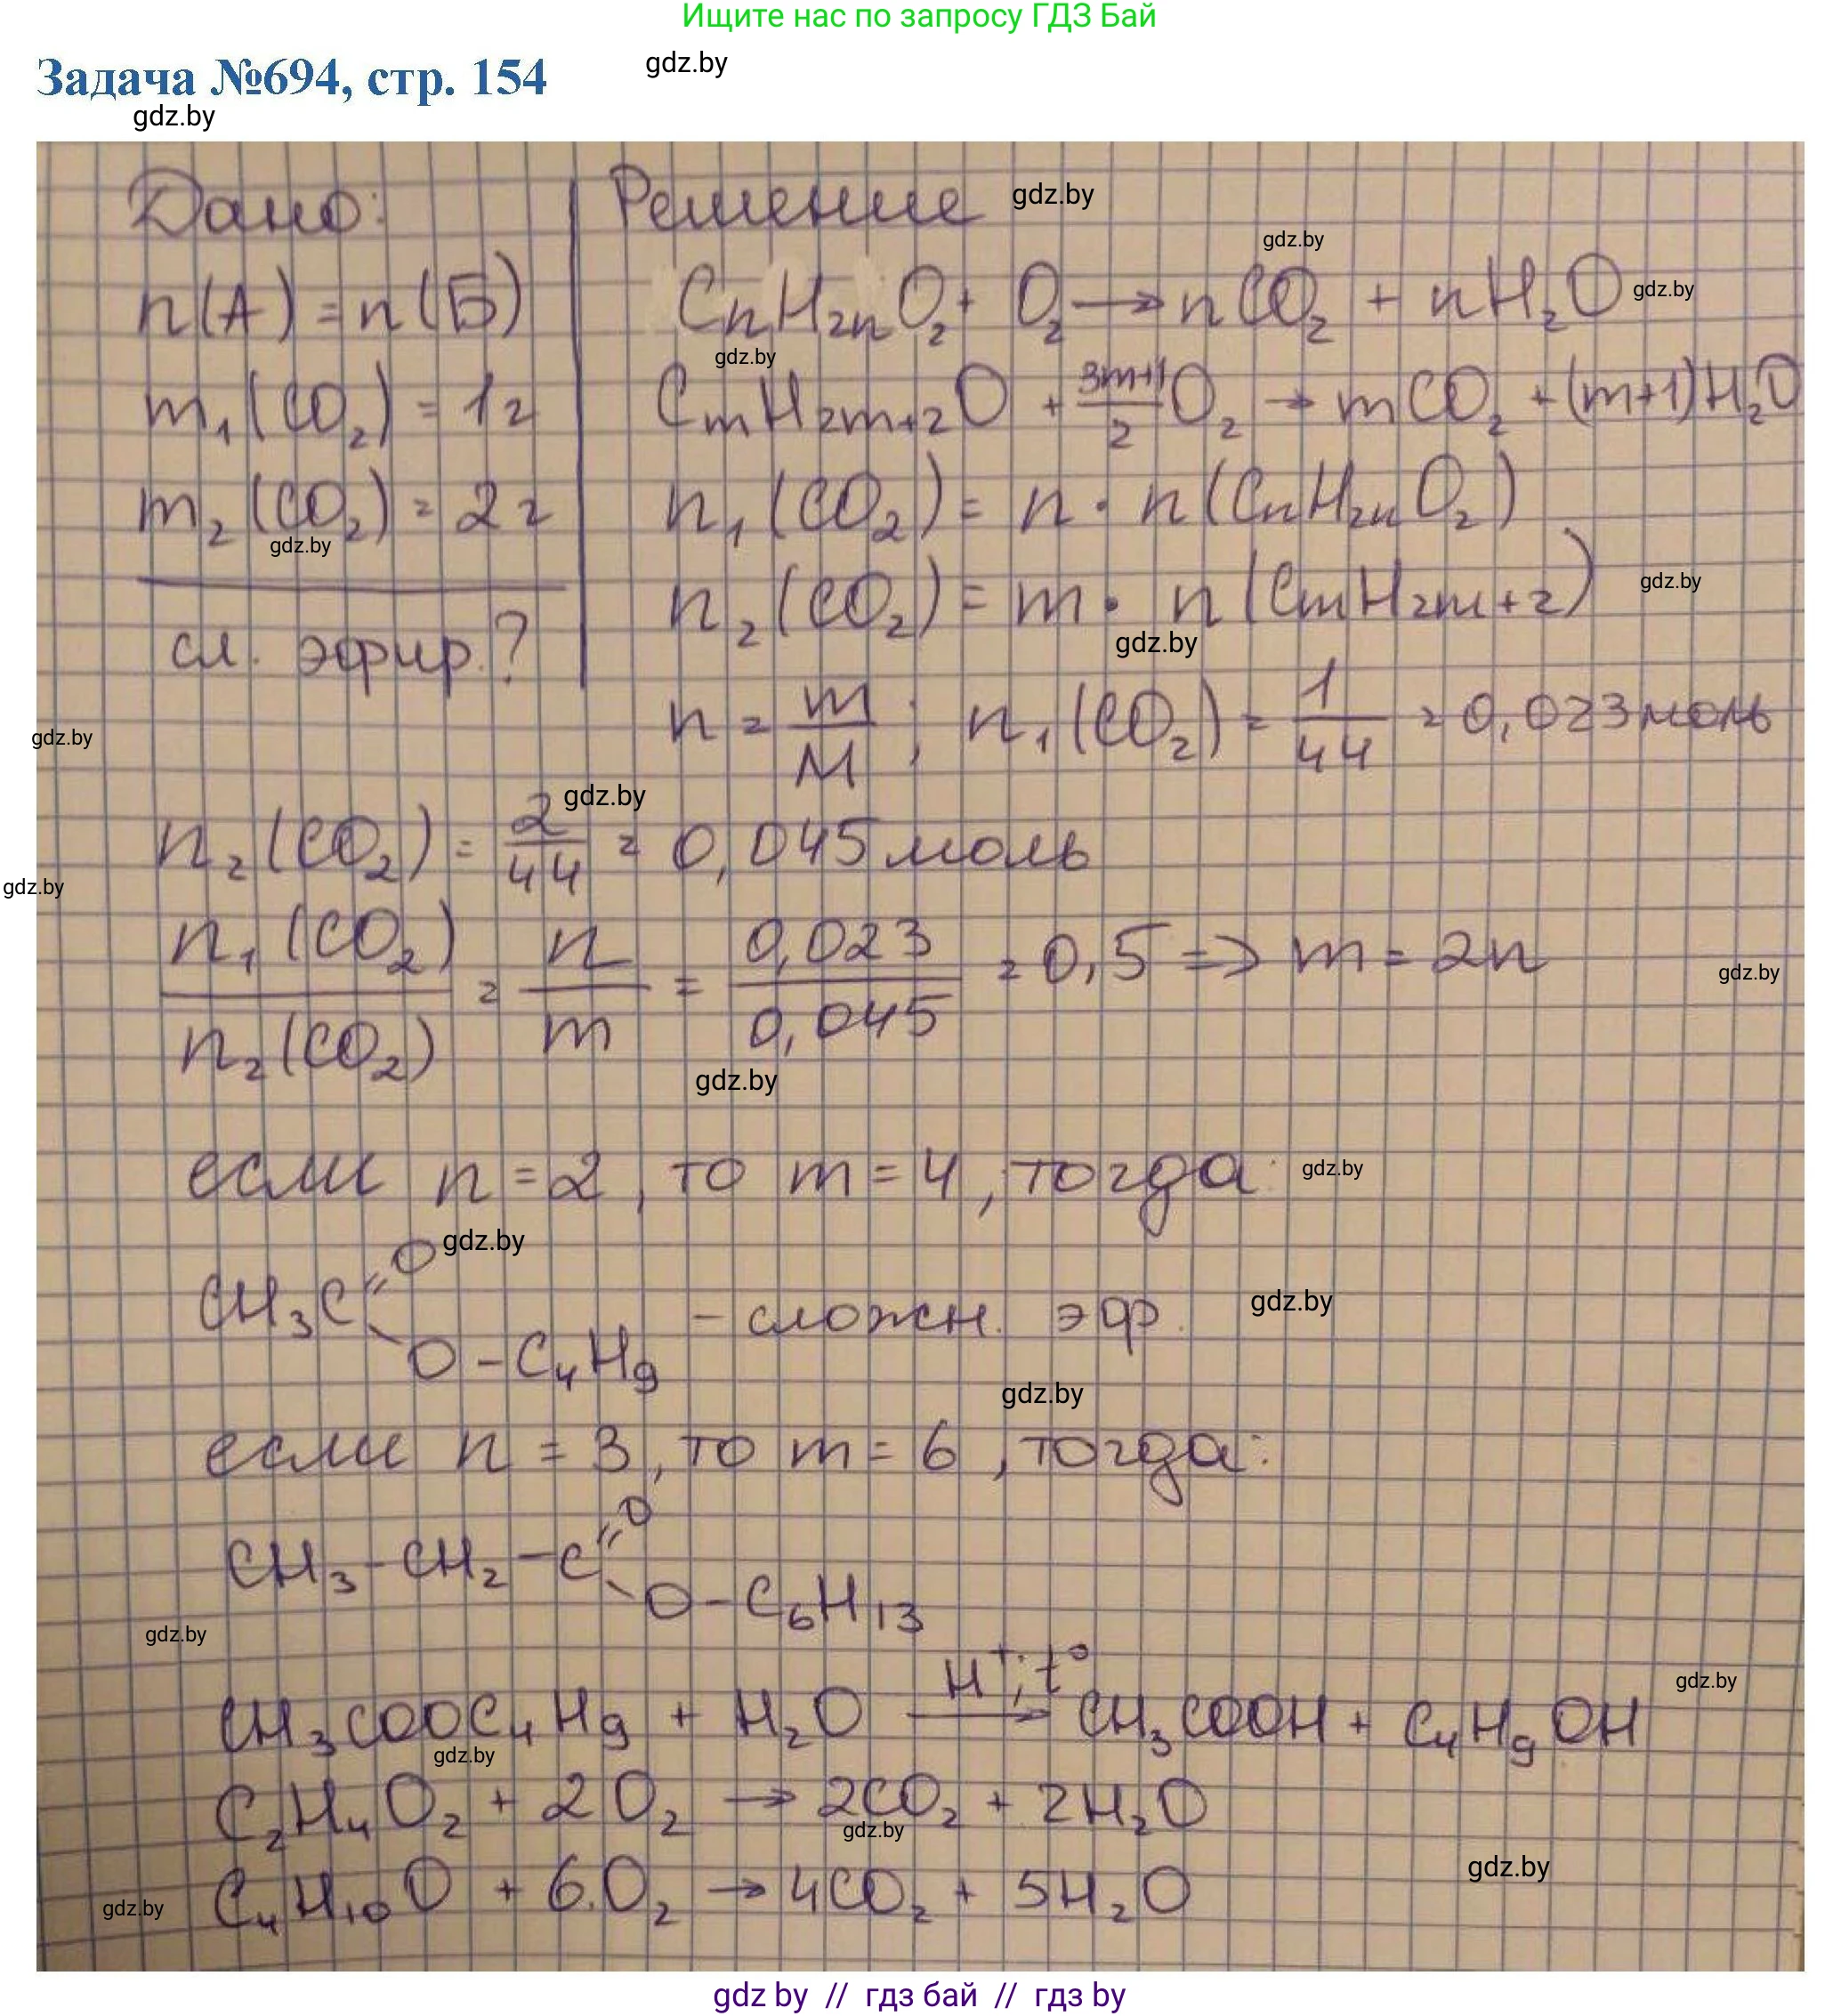 Ищите нас по запросу ГДЗ Бай
Задача №694, стр. 154
gdz.by
gdz.by
Дано:
Решение
gdz.by
gdz.by
n(А) = n(Б)
CnH2nO2 + O2 → nCO2 + nH2O
gdz.by
gdz.by
m1(CO2) = 1г
CmH2m+2O + 3m+1/2 O2 → mCO2 + (m+1)H2O
m2(CO2) = 2г
n1(CO2) = n · n(CnH2nO2)
gdz.by
n2(CO2) = m · n(CmH2m+2)
gdz.by
gdz.by
сл. эфир.?
n = m/M ; n1(CO2) = 1/44 = 0,023моль
gdz.by
gdz.by
n2(CO2) = 2/44 = 0,045моль
gdz.by
n1(CO2)/n2(CO2) = n/m = 0,023/0,045 = 0,5 => m = 2n
gdz.by
gdz.by
если n = 2, то m = 4, тогда:
gdz.by
gdz.by
CH3C=O
– сложн. эф.
gdz.by
O–C4H9
gdz.by
если n = 3, то m = 6, тогда:
CH3–CH2–C=O
O–C6H13
gdz.by
gdz.by
CH3COOC4H9 + H2O H+; t° → CH3COOH + C4H9OH
gdz.by
C2H4O2 + 2O2 → 2CO2 + 2H2O
gdz.by
gdz.by
C4H10O + 6O2 → 4CO2 + 5H2O
gdz.by
gdz by // гдз бай // гдз by